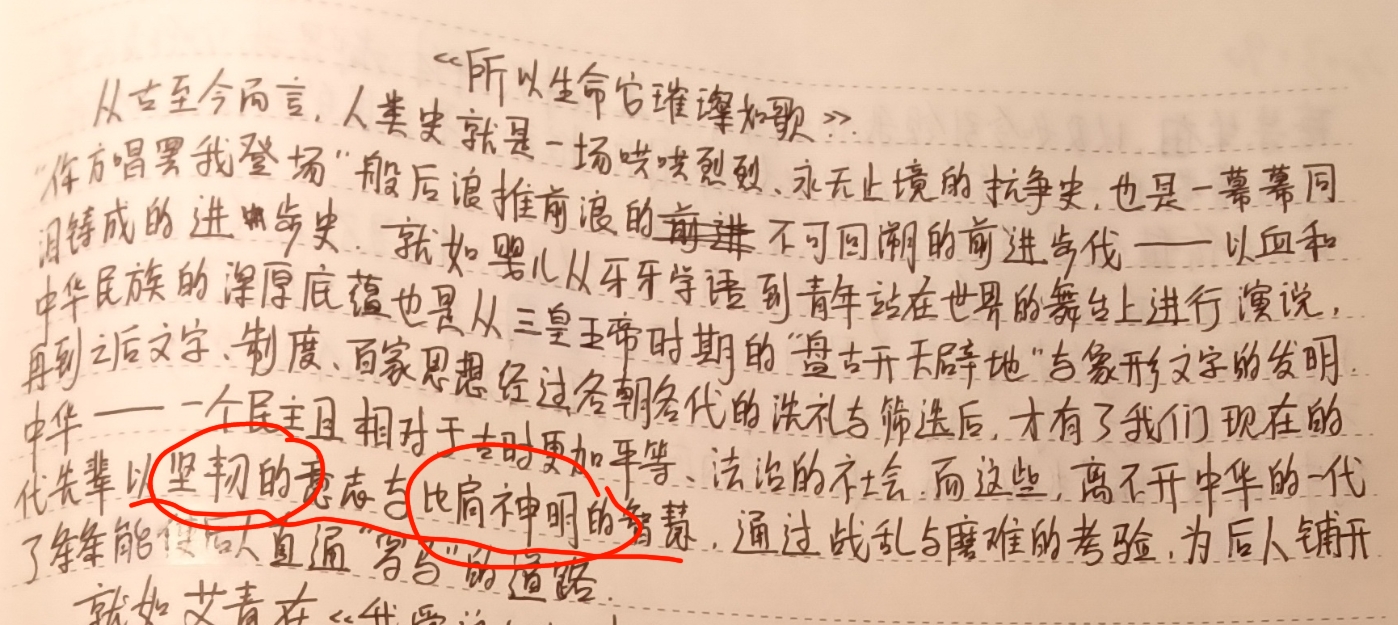 《所以生命它璀璨如歌》.
从古至今而言,人类史就是一场哄哄烈烈、永无止境的抗争史,也是一幕幕同
“你方唱罢我登场”般后浪推前浪的前进不可回溯的前进步伐——以血和
泪铸成的进步史.就如婴儿从牙牙学语到青年站在世界的舞台上进行演说,
中华民族的深厚底蕴也是从三皇王帝时期的“盘古开天辟地”与象形文字的发明.
再到之后文字、制度、百家思想经过各朝各代的洗礼与筛选后,才有了我们现在的
中华——一个民主且相对于古时更加平等、法治的社会.而这些,离不开中华的一代
代先辈以坚韧的意志与比肩神明的智慧,通过战乱与磨难的考验,为后人铺开
了条条能使后人直通“的道路.
就如艾青在《我爱